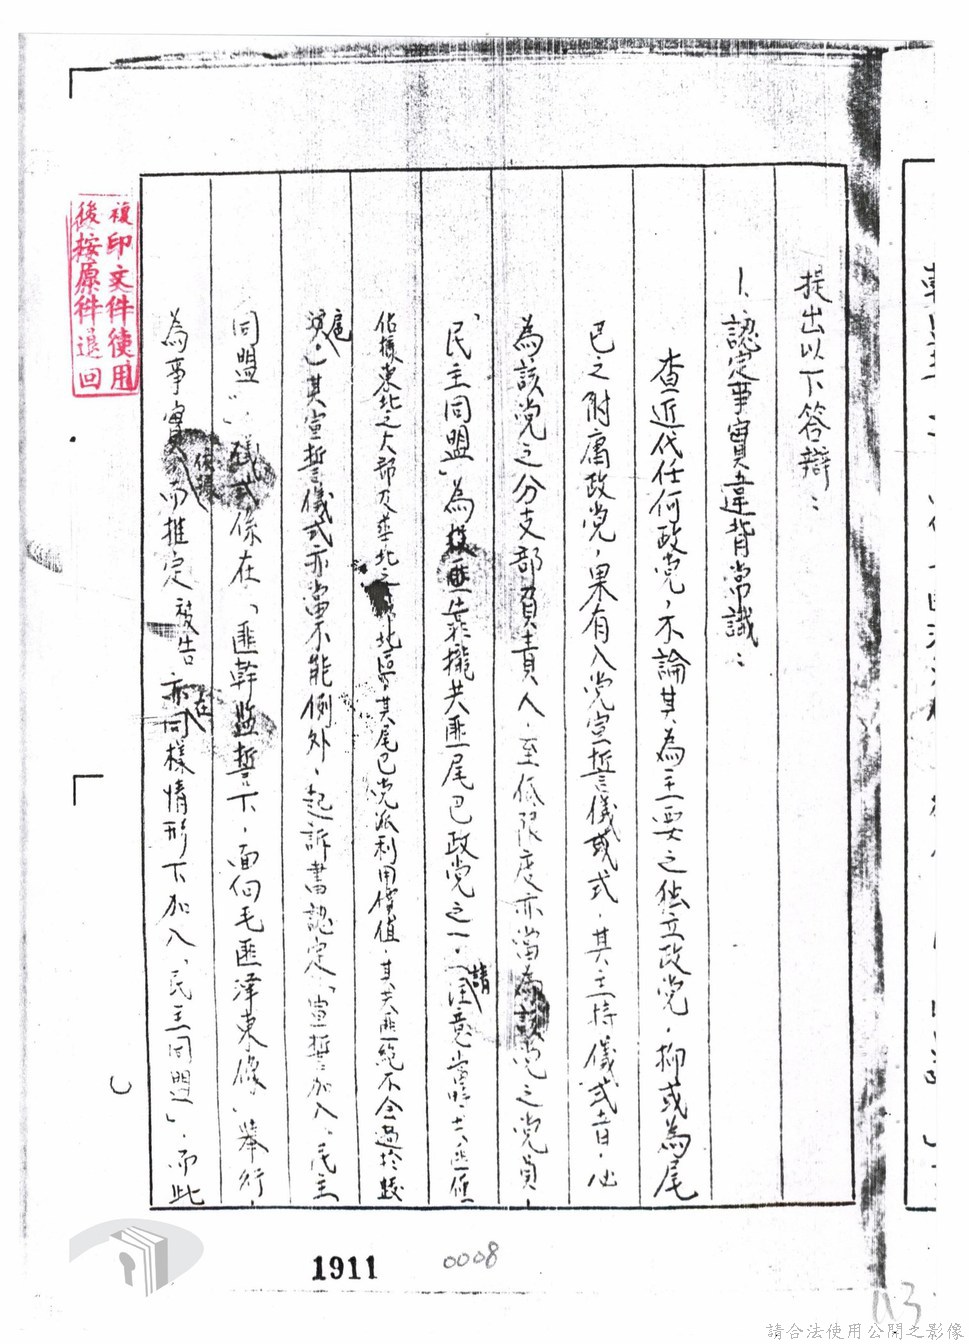 提出以下答辯：
1、認定事實違背常識：
查近代任何政党，不論其為主要之独立政党，抑或為尾
巴之附庸政党，果有入党宣誓儀式，其主持儀式者，必
為該党之分支部負責人，至低限度亦當為該党之党員，
「民主同盟」為匪靠攏共匪尾巴政党之一，（請注意當時共匪僅
佔據東北之大部及華北之北區，其尾巴党派利用價值，其共匪絕不会過於跋
扈，）其宣誓儀式亦當不能例外，起訴書認定「宣誓加入『民主
同盟』，儀式係在「匪幹監誓下，面向毛匪澤東像」舉行，
為事實依據而推定被告亦在同樣情形下加入「民主同盟」，而此
複印文件使用
後按原件退回
1911
0008
113
請合法使用公開之影像